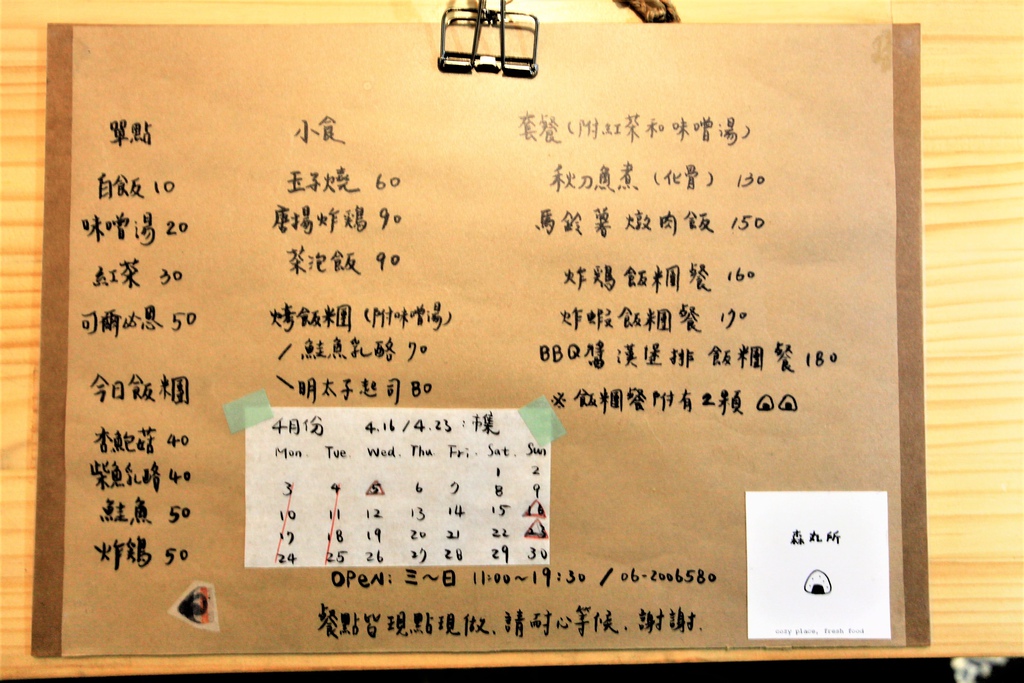 單點
白飯 10
味噌湯 20
紅茶 30
可爾必思 50
今日飯糰
杏鮑菇 40
柴魚乳酪 40
鮭魚 50
炸鶏 50
小食
玉子燒 60
唐揚炸鶏 90
茶泡飯 90
烤飯糰(附味噌湯)
/ 鮭魚乳酪 70
\ 明太子起司 80
套餐(附紅茶和味噌湯)
秋刀魚煮(化骨) 130
馬鈴薯燉肉飯 150
炸鶏飯糰餐 160
炸蝦飯糰餐 170
BBQ醬漢堡排飯糰餐 180
※飯糰餐附有2顆
4月份 4.16/4.23:市集
Mon. Tue. Wed. Thu. Fri. Sat. Sun
1 2
3 4 5 6 7 8 9
10 11 12 13 14 15 16
17 18 19 20 21 22 23
24 25 26 27 28 29 30
OPEN: 三~日 11:00~19:30 /06-2006580
餐點皆現點現做、請耐心等候、謝謝.
森丸所
cozy place, fresh food